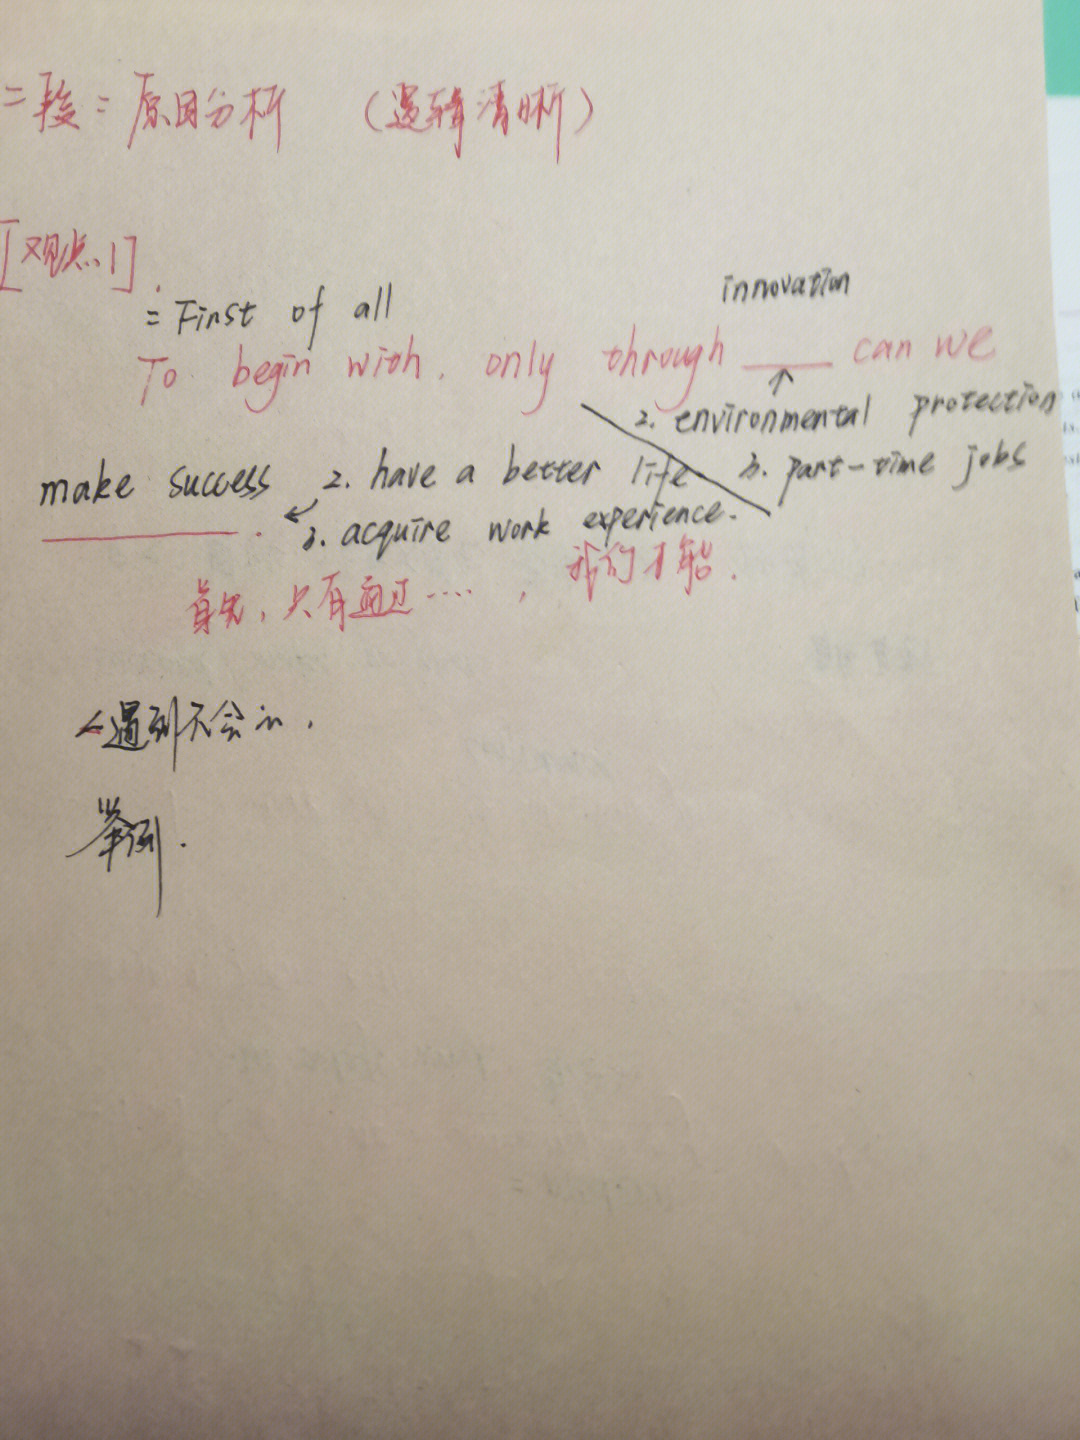 二段：原因分析 （逻辑清晰）
[观点1].
= First of all
innovation
To begin with, only through ____ can we
2. environmental protection
make success 2. have a better life 3. part-time jobs
______. 3. acquire work experience.
首先，只有通过……，我们才能.
<遇到不会的，
举例.